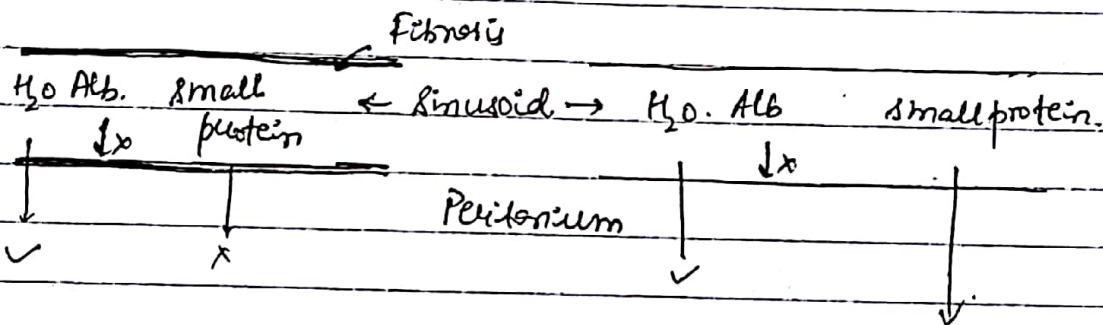 Fibrosis
H₂O Alb. small protein ← Sinusoid → H₂O. Alb small protein.
↓x ↓x
Peritonium
✓ x ✓